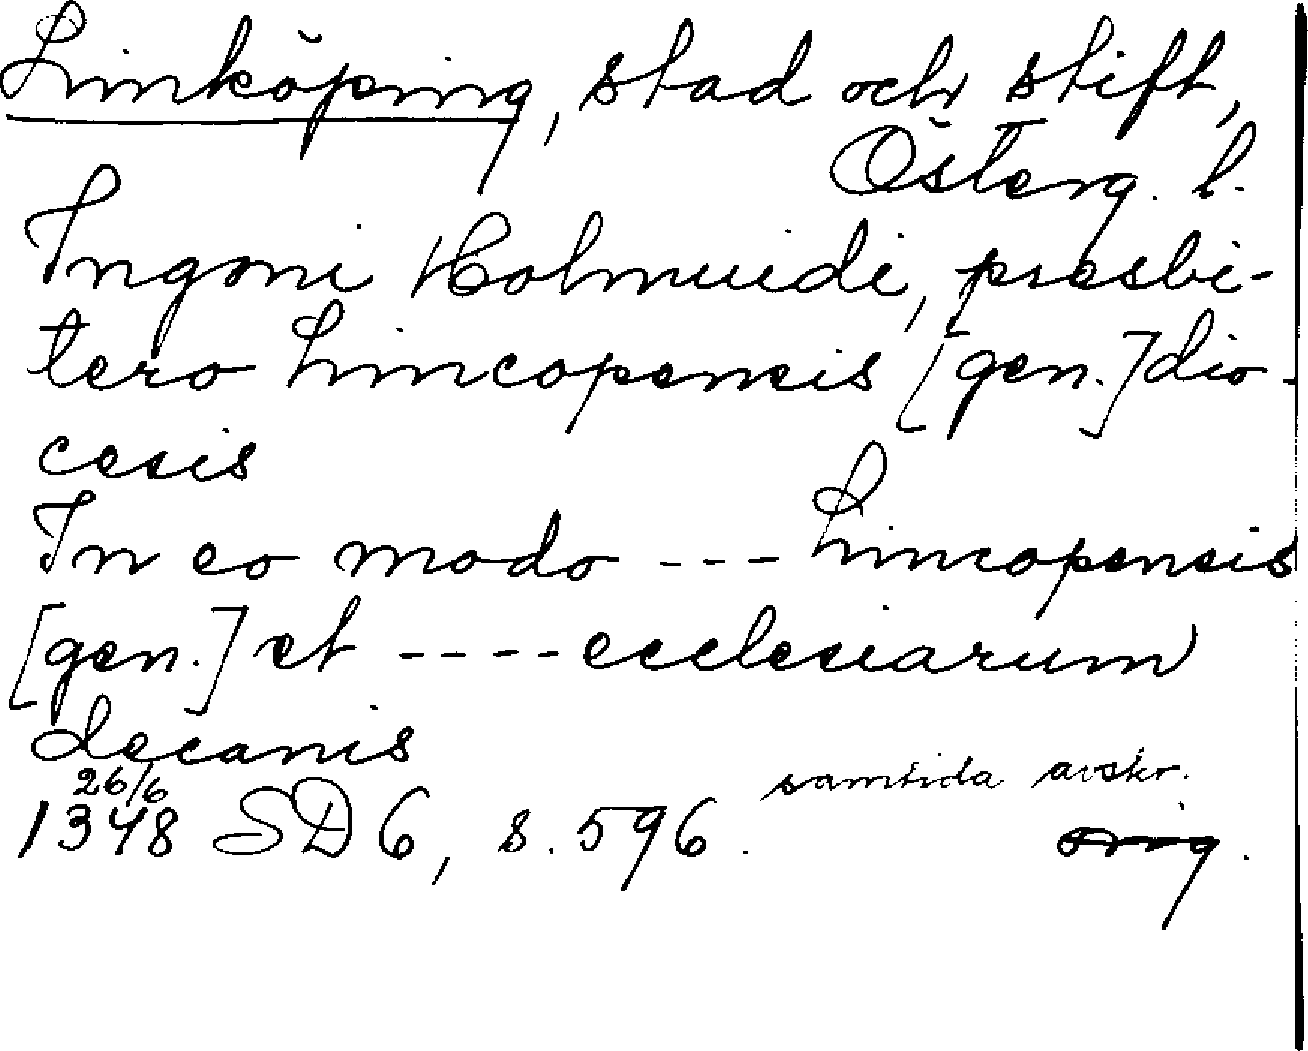 Linköping, stad och stift,
Österg. l.
Ingoni Holmuidi, presbi-
tero Lincopensis [gen.] dio-
cesis
In eo modo --- Lincopensis
[gen.] et ---- ecclesiarum
decanis
26/6 samtida avskr.
1348 SD 6, s. 596. orig.